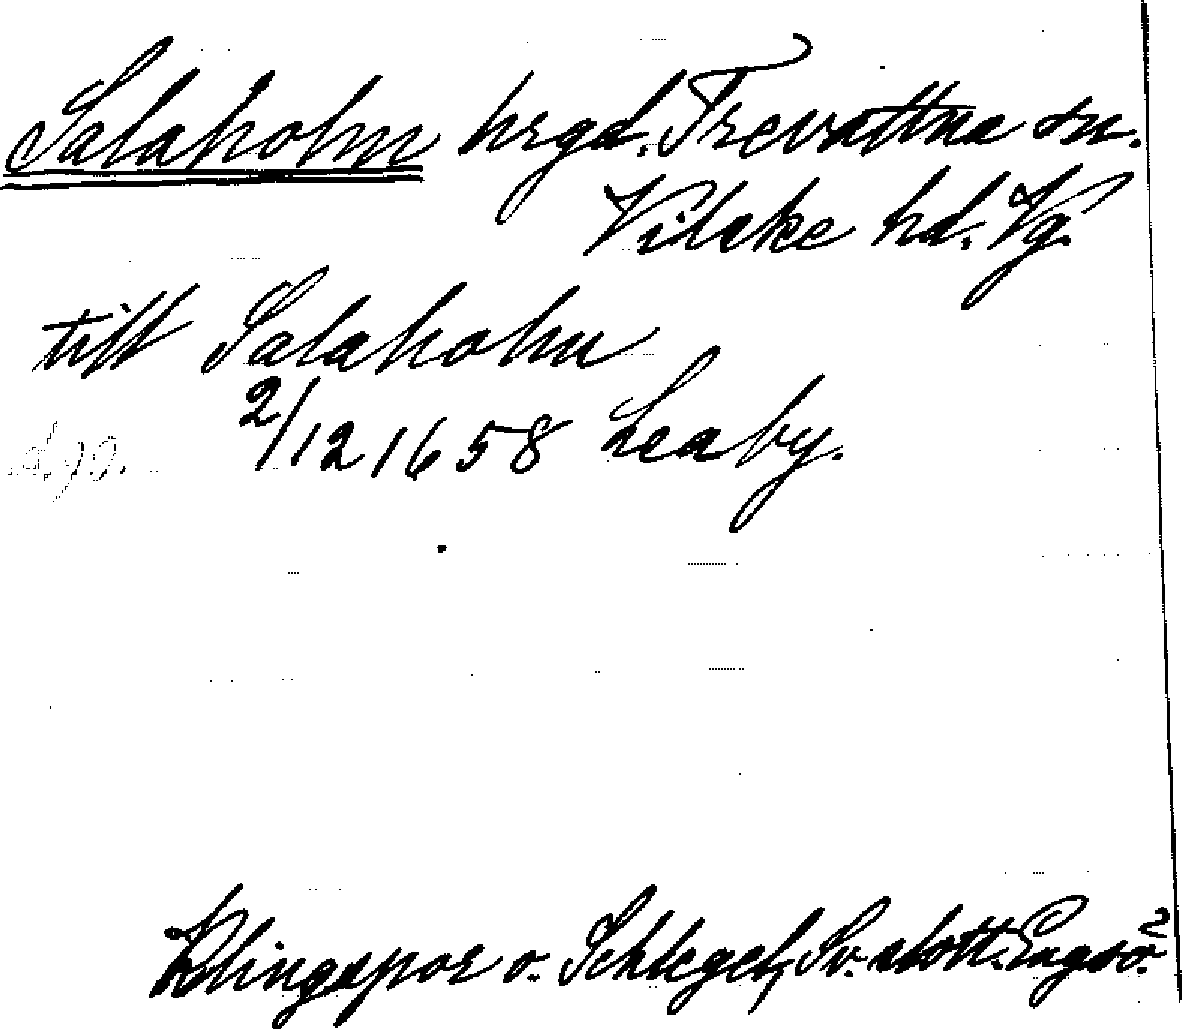 Salaholm hrgd. Trevattna sn.
Vilske hd. Vg.
till Salaholm
2/12 1658 Leaby.
Klingspor o. Schlegel, Sv. slott. Engsö.